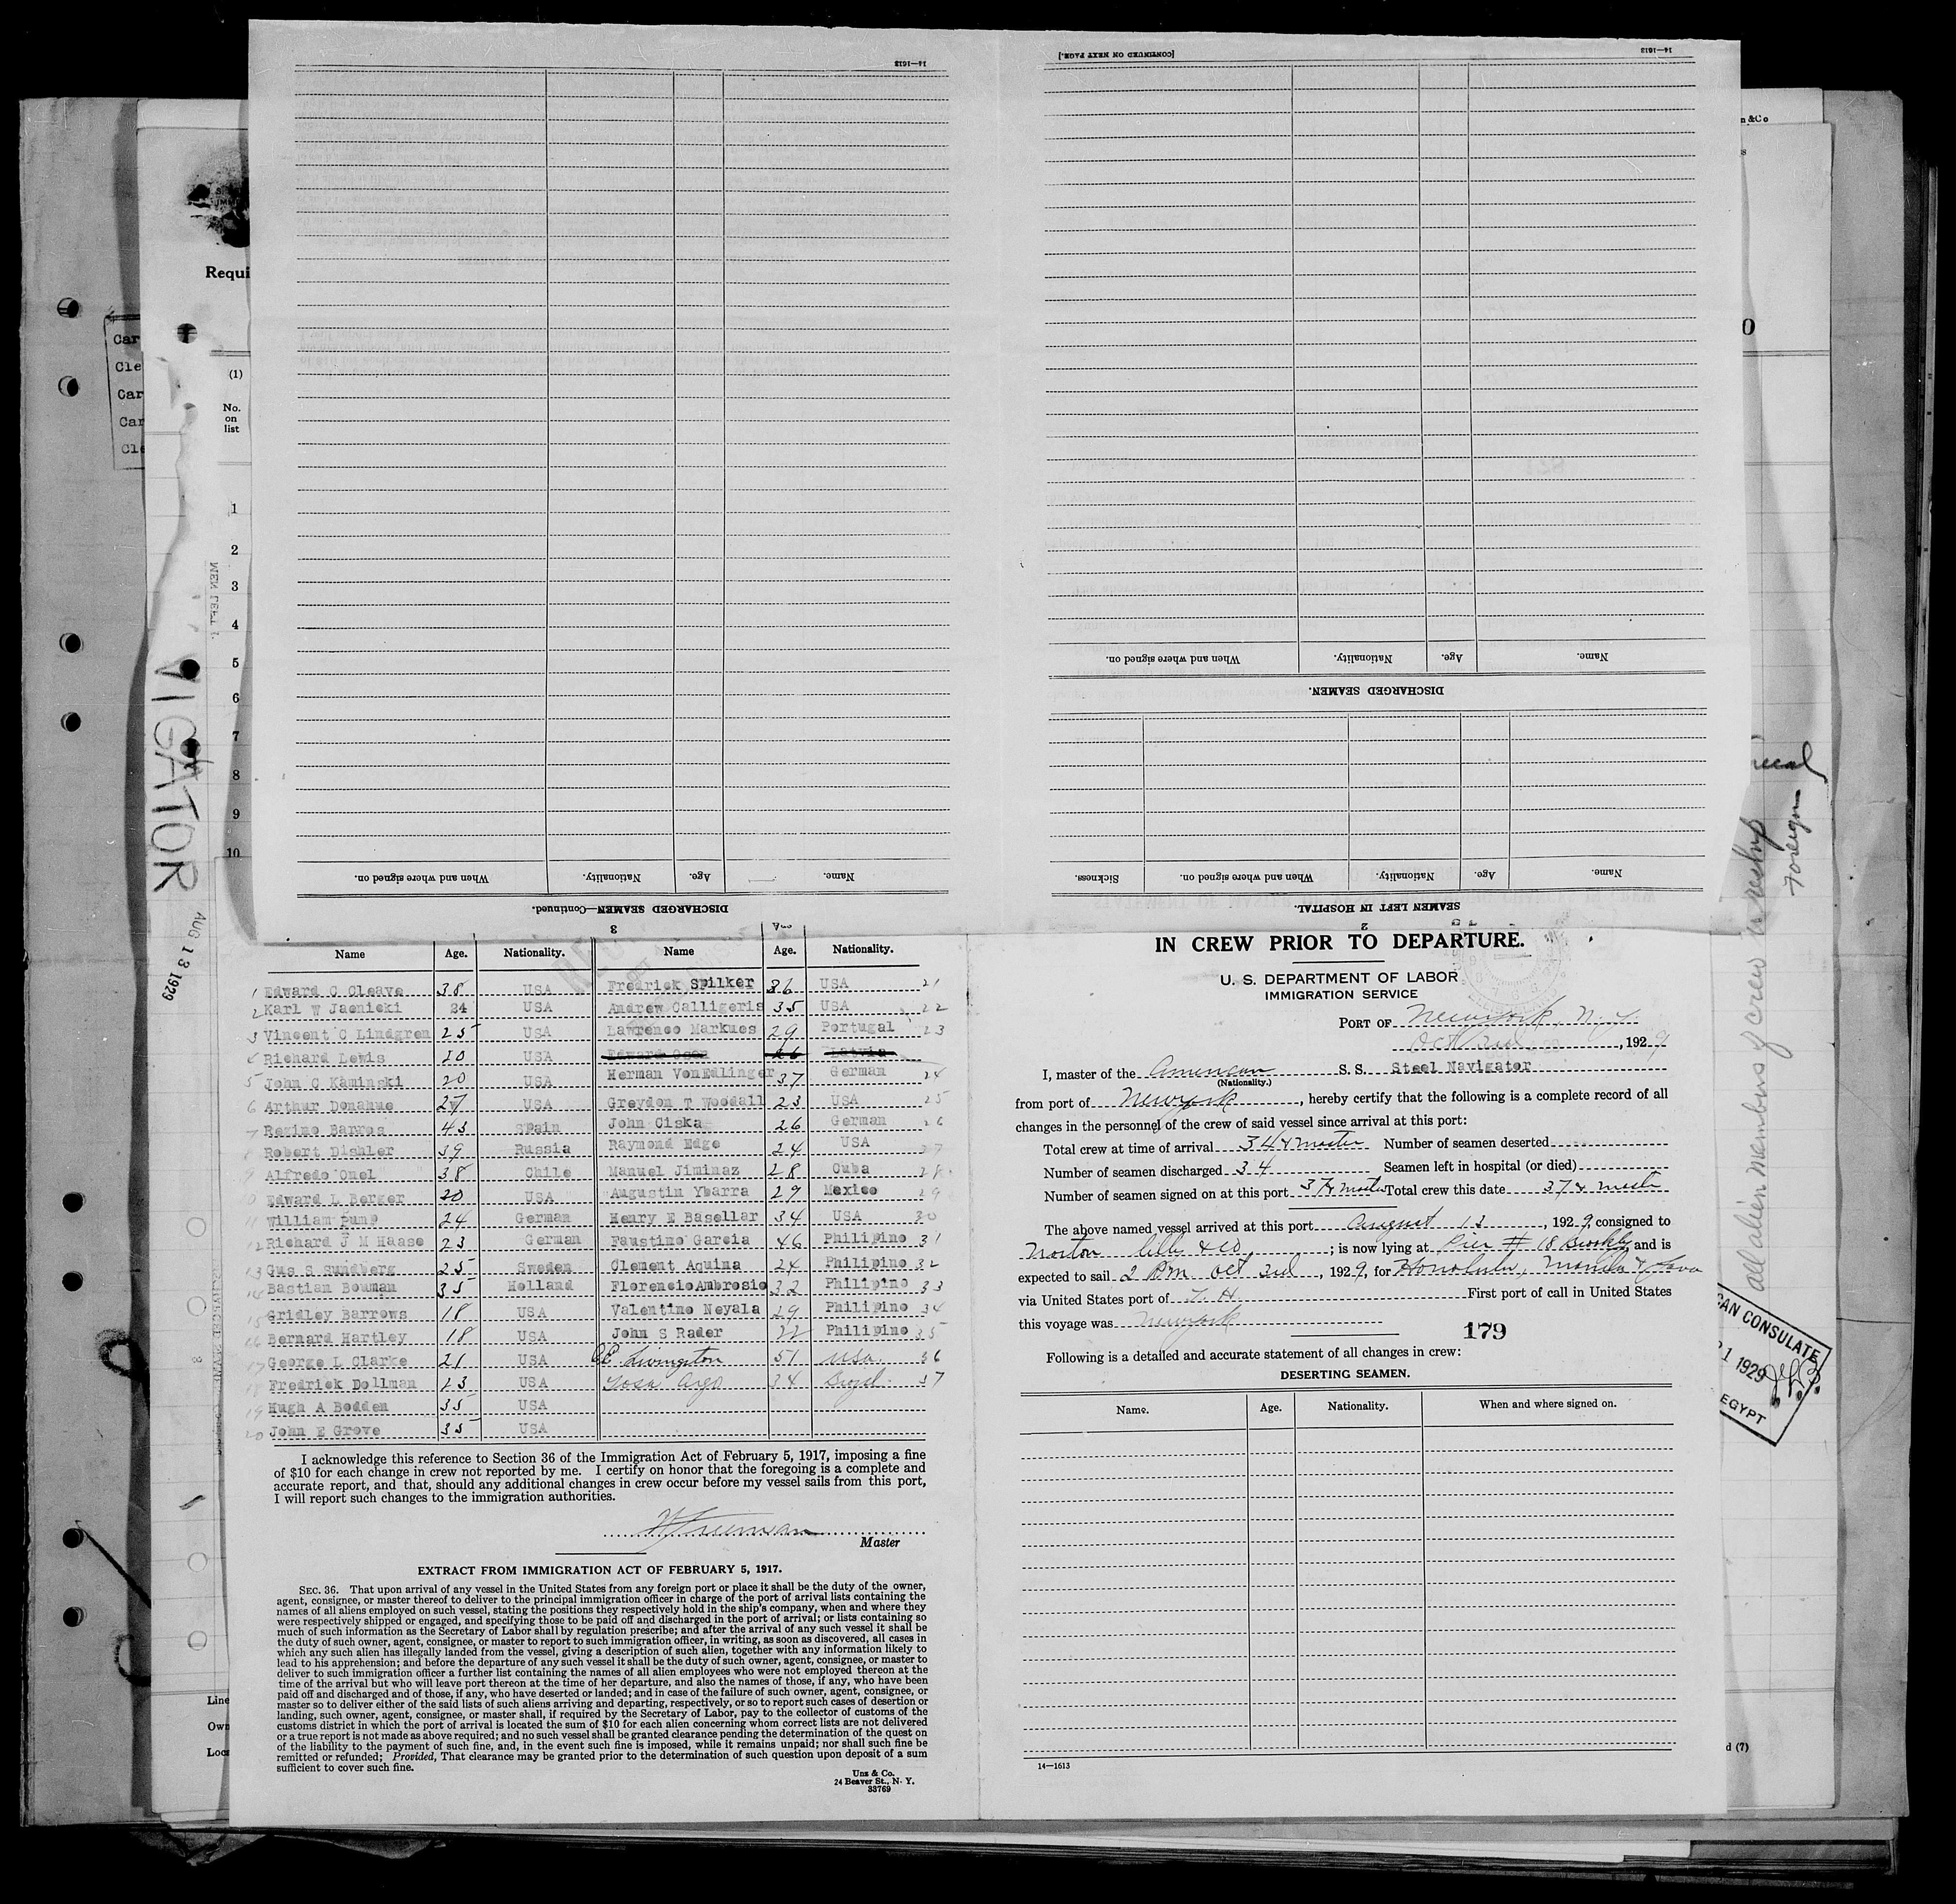 14—1613
[CONTINUED ON NEXT PAGE.]
14—1613
When and where signed on.
Nationality.
Age.
Name.
DISCHARGED SEAMEN—Continued.
3
When and where signed on.
Nationality.
Age.
Name.
DISCHARGED SEAMEN.
Sickness.
When and where signed on.
Nationality.
Age.
Name.
SEAMEN LEFT IN HOSPITAL.
2
Requi
(1)
No.
on
list
1
2
3
4
5
6
7
8
9
10
Car
Cle
Car
Car
Cle
VIGATOR
AUG 13 1929
Name Age. Nationality. Name Age. Nationality.
1 Edward C Cleave 38 USA Fredrick Spilker 36 USA 21
2 Karl W Jaenicki 24 USA Andrew Calligeris 35 USA 22
3 Vincent C Lindgren 25 USA Lawrence Markues 29 Portugal 23
Richard Lewis 20 USA Edward Osen 26 Latvia
5 John C Kaminski 20 USA Herman VonEdlinger 37 German 24
6 Arthur Donahue 27 USA Greydon T Woodall 23 USA 25
7 Regino Barros 43 Spain John Ciska 26 German 26
8 Robert Dishler 39 Russia Raymond Edge 24 USA 27
9 Alfredo Onel 38 Chile Manuel Jiminaz 28 Cuba 28
10 Edward L Berger 20 USA Augustin Ybarra 29 Mexico 29
11 William Pump 24 German Henry E Basellar 34 USA 30
12 Richard J M Haase 23 German Faustino Garcia 46 Philipino 31
13 Gus S Sundberg 25 Sweden Clement Aquina 24 Philipino 32
14 Bastian Bouman 35 Holland Florencio Ambrosio 32 Philipino 33
15 Gridley Barrows 18 USA Valentino Neyala 29 Philipino 34
16 Bernard Hartley 18 USA John S Rader 22 Philipino 35
17 George L Clarke 21 USA CE Livingston 51 USA. 36
18 Fredrick Dollman 23 USA Argo 34 37
19 Hugh A Bodden 35 USA
20 John E Grove 35 USA
I acknowledge this reference to Section 36 of the Immigration Act of February 5, 1917, imposing a fine
of $10 for each change in crew not reported by me. I certify on honor that the foregoing is a complete and
accurate report, and that, should any additional changes in crew occur before my vessel sails from this port,
I will report such changes to the immigration authorities.
Master
EXTRACT FROM IMMIGRATION ACT OF FEBRUARY 5, 1917.
SEC. 36. That upon arrival of any vessel in the United States from any foreign port or place it shall be the duty of the owner,
agent, consignee, or master thereof to deliver to the principal immigration officer in charge of the port of arrival lists containing the
names of all aliens employed on such vessel, stating the positions they respectively hold in the ship's company, when and where they
were respectively shipped or engaged, and specifying those to be paid off and discharged in the port of arrival; or lists containing so
much of such information as the Secretary of Labor shall by regulation prescribe; and after the arrival of any such vessel it shall be
the duty of such owner, agent, consignee, or master to report to such immigration officer, in writing, as soon as discovered, all cases in
which any such alien has illegally landed from the vessel, giving a description of such alien, together with any information likely to
lead to his apprehension; and before the departure of any such vessel it shall be the duty of such owner, agent, consignee, or master to
deliver to such immigration officer a further list containing the names of all alien employees who were not employed thereon at the
time of the arrival but who will leave port thereon at the time of her departure, and also the names of those, if any, who have been
paid off and discharged and of those, if any, who have deserted or landed; and in case of the failure of such owner, agent, consignee, or
master so to deliver either of the said lists of such aliens arriving and departing, respectively, or so to report such cases of desertion or
landing, such owner, agent, consignee, or master shall, if required by the Secretary of Labor, pay to the collector of customs of the
customs district in which the port of arrival is located the sum of $10 for each alien concerning whom correct lists are not delivered
or a true report is not made as above required; and no such vessel shall be granted clearance pending the determination of the quest on
of the liability to the payment of such fine, and, in the event such fine is imposed, while it remains unpaid; nor shall such fine be
remitted or refunded; Provided, That clearance may be granted prior to the determination of such question upon deposit of a sum
sufficient to cover such fine.
Unz & Co.
24 Beaver St., N. Y.
33769
IN CREW PRIOR TO DEPARTURE.
U. S. DEPARTMENT OF LABOR
IMMIGRATION SERVICE
PORT OF New York, N. Y.
Oct 2nd, 1929
I, master of the American S. S. Steel Navigator
(Nationality.)
from port of New York, hereby certify that the following is a complete record of all
changes in the personnel of the crew of said vessel since arrival at this port:
Total crew at time of arrival 34 & master Number of seamen deserted
Number of seamen discharged 34 Seamen left in hospital (or died)
Number of seamen signed on at this port 37 & master Total crew this date 37 & master
The above named vessel arrived at this port August 13, 1929, consigned to
Norton Lilly & Co; is now lying at Pier # 18 Brooklyn and is
expected to sail 2 PM Oct 2nd, 1929, for Honolulu, Manila & Java
via United States port of T. H. First port of call in United States
this voyage was New York
179
Following is a detailed and accurate statement of all changes in crew:
DESERTING SEAMEN.
Name. Age. Nationality. When and where signed on.
14—1613
n &Co
s
0
foreign
all alien members of crew
CAN CONSULATE
1 1929
EGYPT
d (7)
Line
Own
Loc